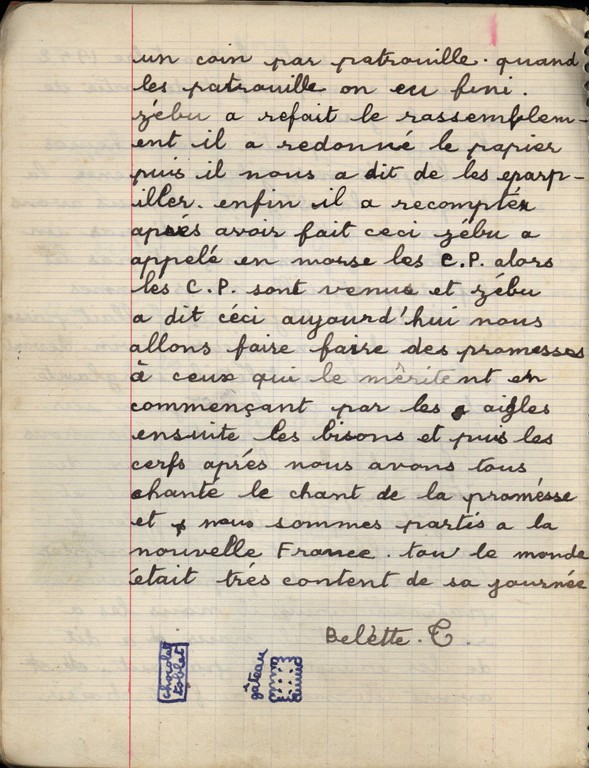 un coin par patrouille. quand
les patrouille on eu fini.
zébu a refait le rassemplem-
ent il a redonné le papier
puis il nous a dit de les eparp-
iller. enfin il a recomptér
aprés avoir fait ceci zébu a
appelé en morse les C.P. alors
les C.P. sont venus et zébu
a dit céci aujourd'hui nous
allons faire faire des promesses
à ceux qui le méritent en
commençant par les aigles
ensuite les bisons et puis les
cerfs aprés nous avons tous
chanté le chant de la promésse
et nous sommes partis a la
nouvelle France. tou le monde
était trés content de sa journée
Belètte. C.
chocolat
tablet
gâteau